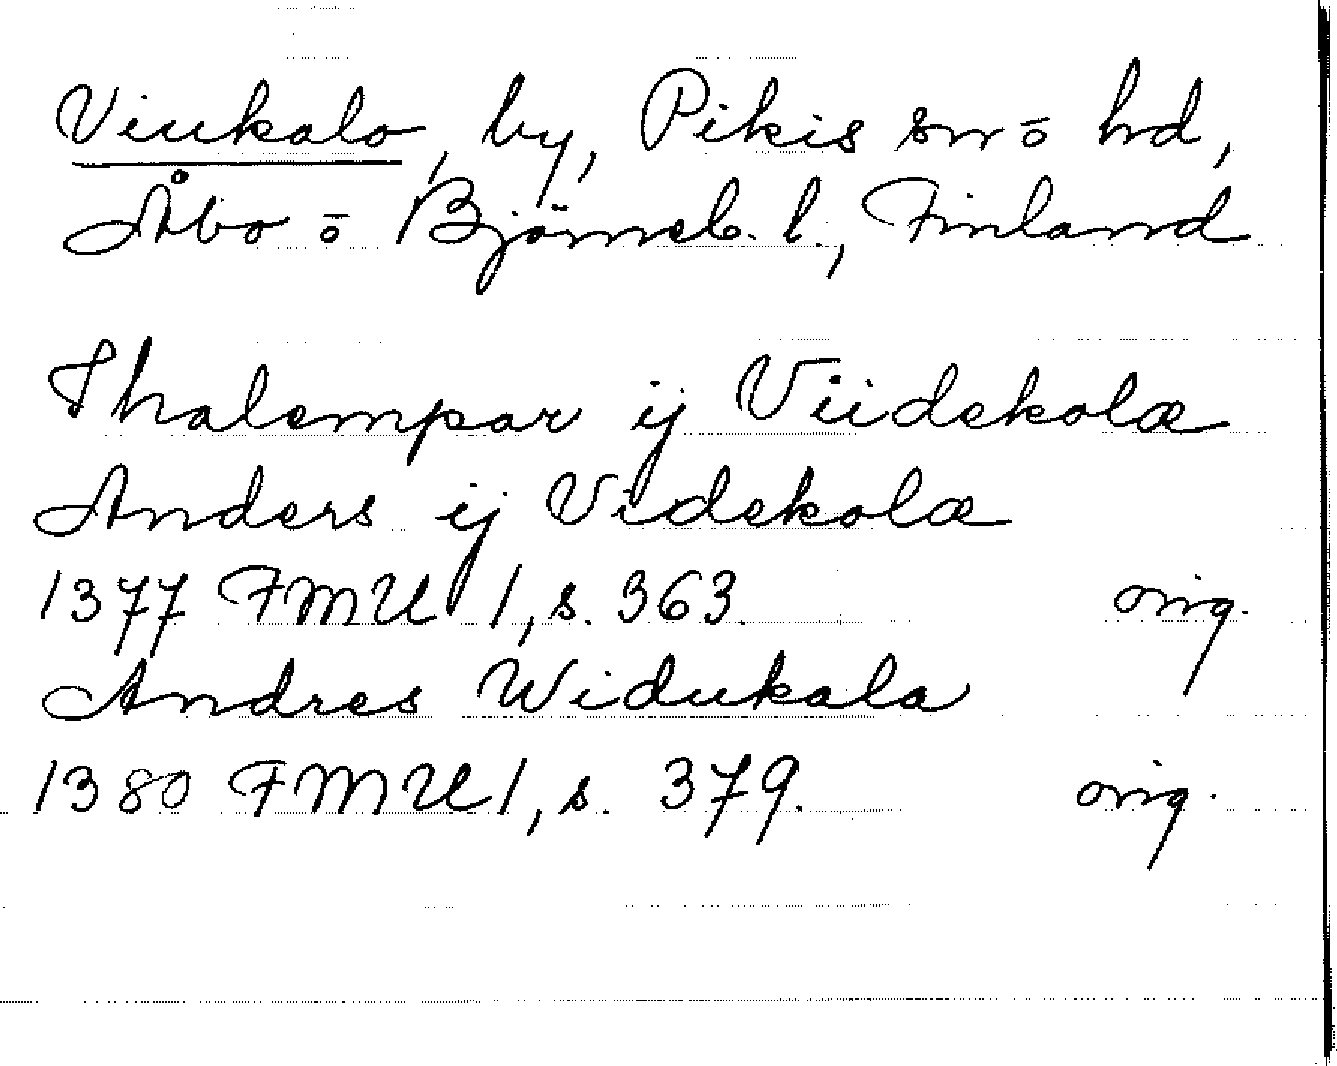 Viukalo, by, Pikis sn ō hd,
Åbo ō Björneb. l., Finland
Thalempar ij Viidekolæ
Anders ij Videkolæ
1377 FMU 1, s. 363. orig.
Andres Widukala
1380 FMU 1, s. 379. orig.